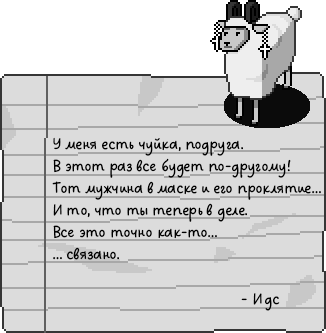 У меня есть чуйка, подруга.
В этот раз все будет по-другому!
Тот мужчина в маске и его проклятие...
И то, что ты теперь в деле.
Все это точно как-то...
... связано.
- Идс